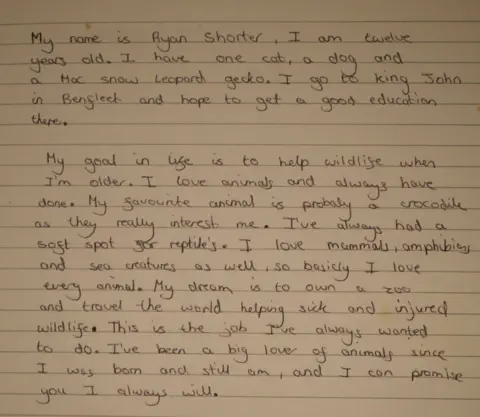 My name is Ryan Shorter, I am twelve
years old. I have one cat, a dog and
a Mac snow Leopard gecko. I go to king John
in Benfleet and hope to get a good education
there.
My goal in life is to help wildlife when
I'm older. I love animals and always have
done. My favourite animal is probaly a crocodile
as they really interest me. I've always had a
soft spot for reptile's. I love mammals, amphibians
and sea creatures as well, so basicly I love
every animal. My dream is to own a zoo
and travel the world helping sick and injured
wildlife. This is the job I've always wanted
to do. I've been a big lover of animals since
I was born and still am, and I can promise
you I always will.